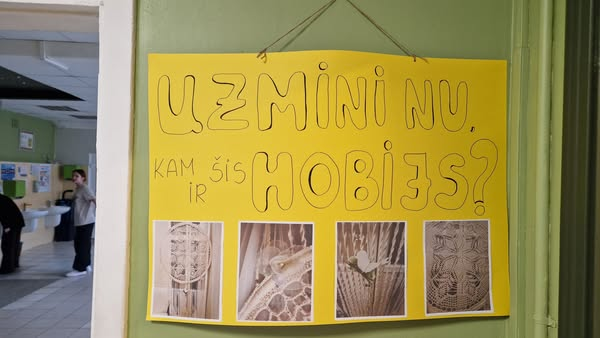 UZMINI NU,
KAM ŠIS HOBIJS?
IR